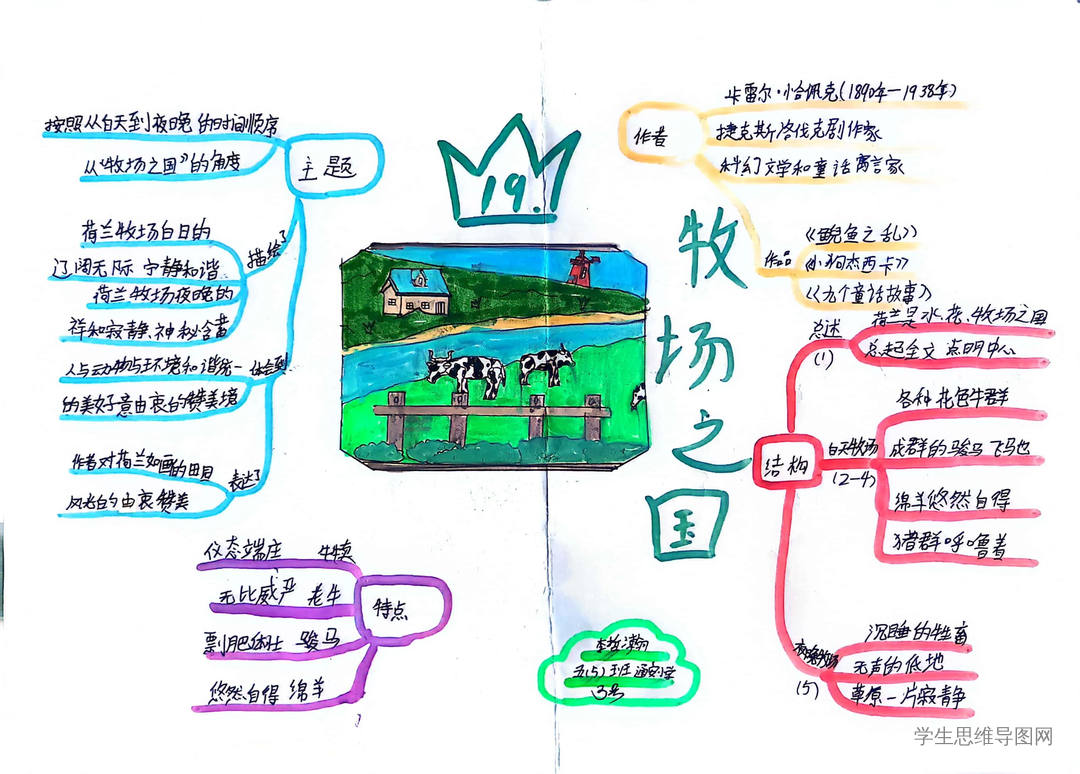 19.
牧场之国
主题
按照从白天到夜晚的时间顺序
从“牧场之国”的角度
描绘了
荷兰牧场白日的
辽阔无际 宁静和谐
荷兰牧场夜晚的
祥和寂静、神秘含蓄
体会到
人与动物与环境和谐统一
的美好意由衷的赞美境
表达了
作者对荷兰如画的田园
风光的由衷赞美
特点
仪态端庄 牛犊
无比威严 老牛
膘肥体壮 骏马
悠然自得 绵羊
作者
卡雷尔·恰佩克(1890年—1938年)
捷克斯洛伐克剧作家
科幻文学和童话寓言家
作品
《鲵鱼之乱》
《小狗杰西卡》
《九个童话故事》
结构
总述
(1)
荷兰是水、花、牧场之国
总起全文 点明中心
白天牧场
(2—4)
各种花色牛群
成群的骏马飞马也
绵羊悠然自得
猪群呼噜着
夜晚牧场
(5)
沉睡的牲畜
无声的低地
草原一片寂静
五(5)班
3号
学生思维导图网